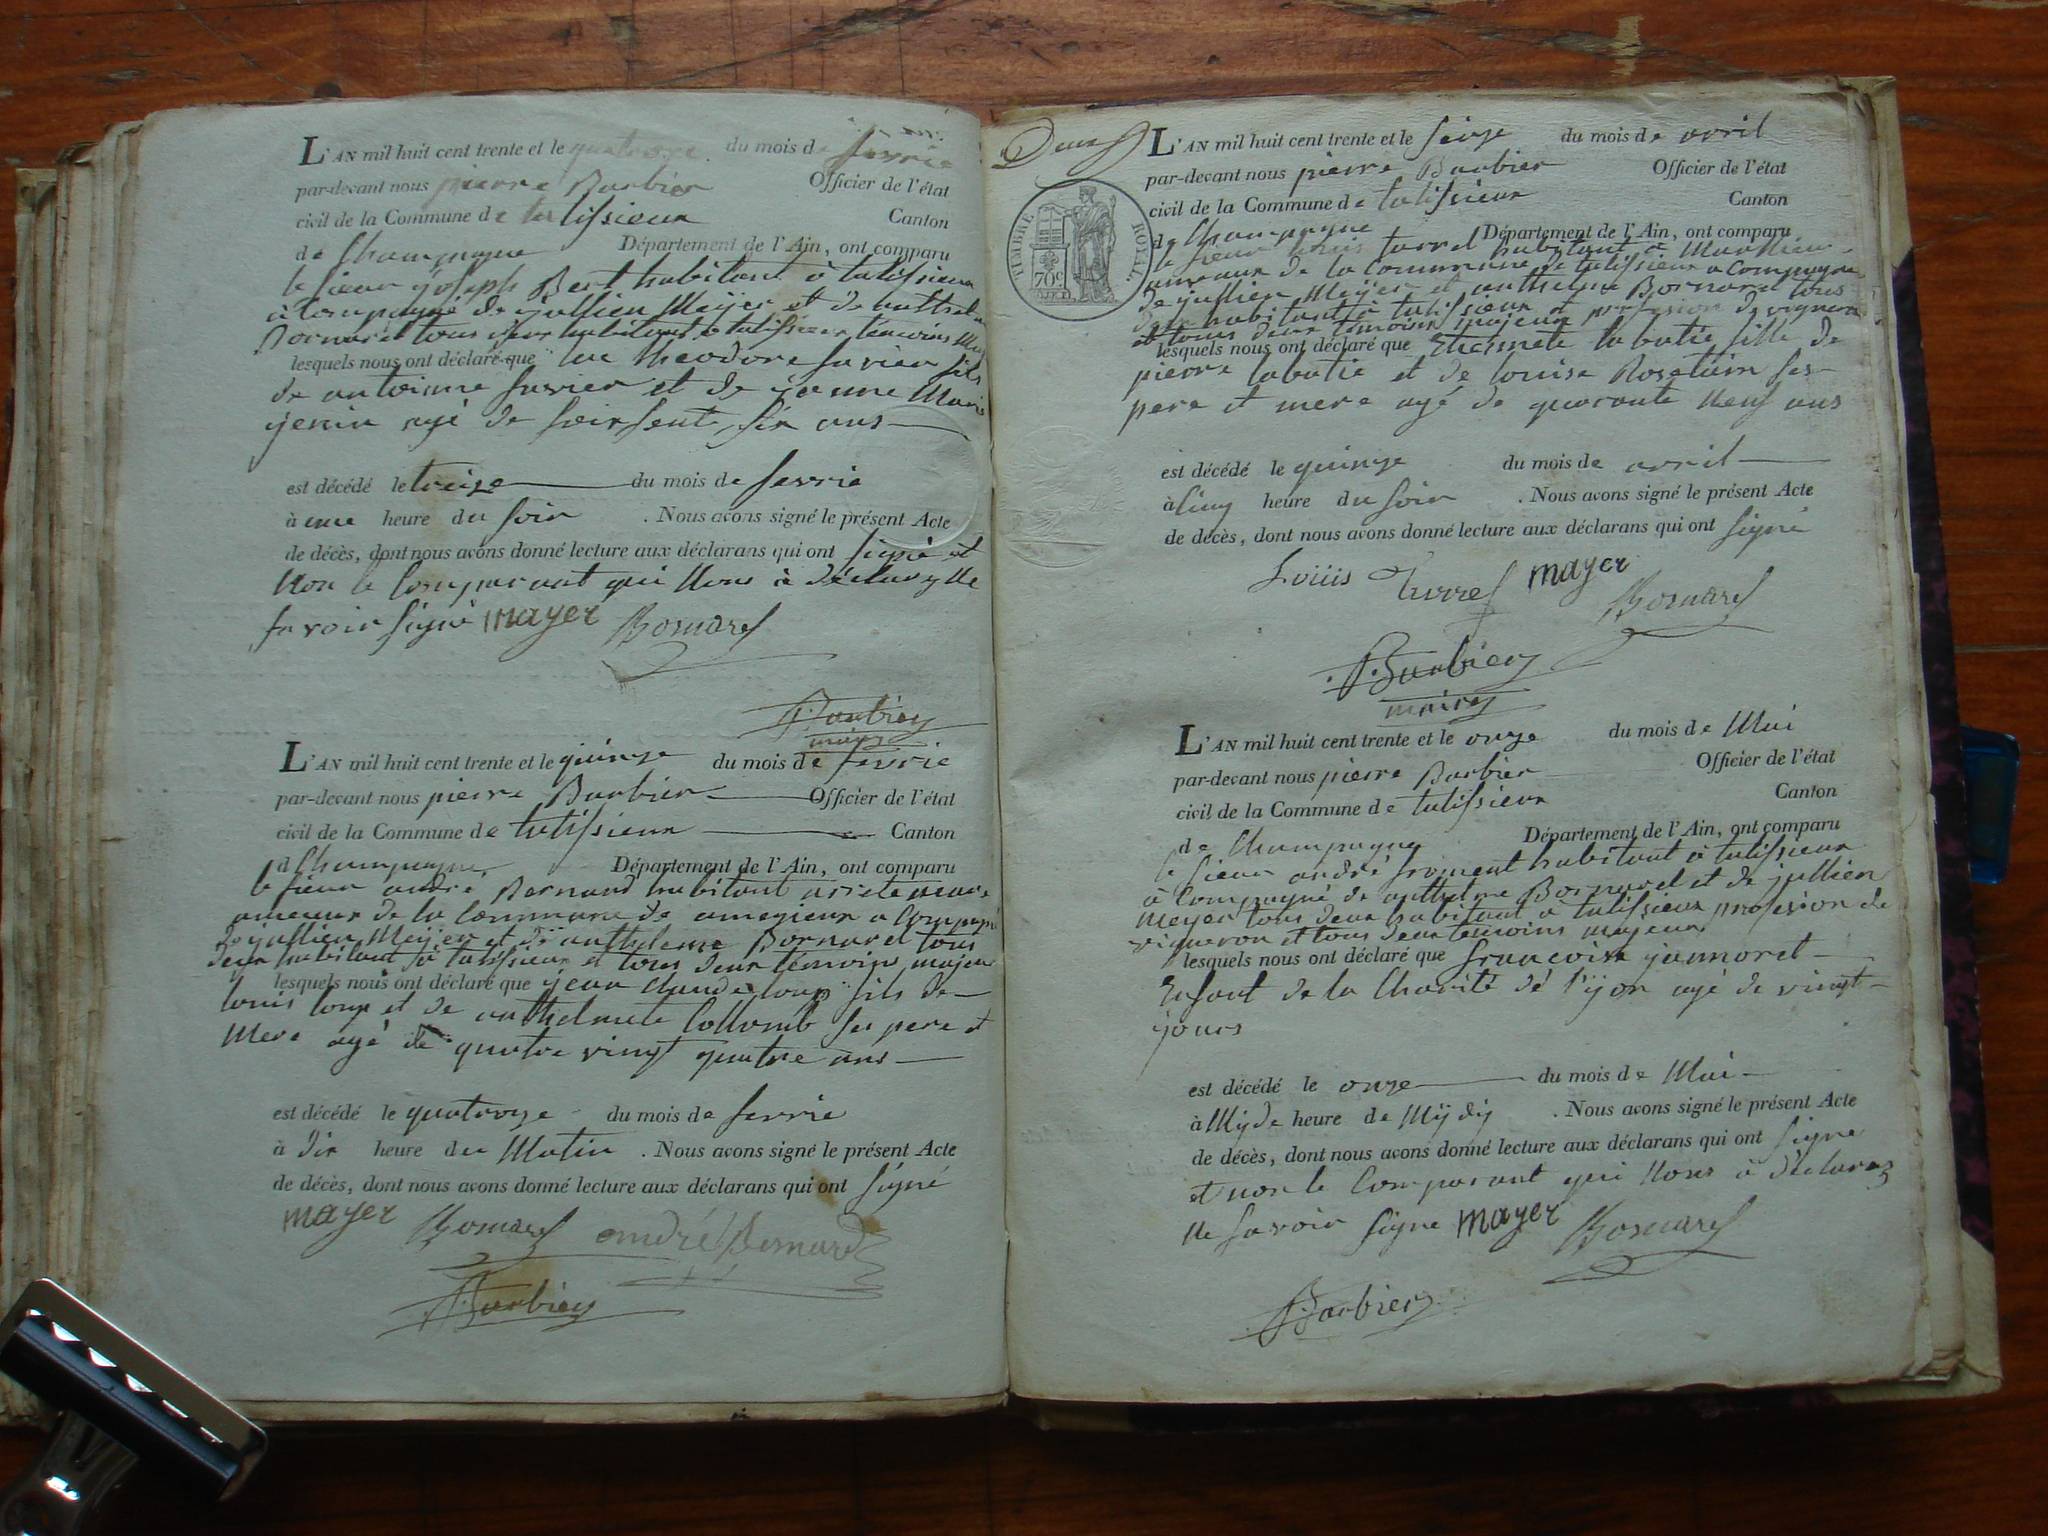 L'AN mil huit cent trente et le quatorze du mois de fevrie
par-devant nous pierre Barbier Officier de l'état
civil de la Commune de talissieux Canton
de Champagne Département de l'Ain, ont comparu
le sieur joseph Bert habitant à talissieux
a Compagné de jullien Meÿer et de anthelme
Bornard et tous deux habitant a talissieux témoins
lesquels nous ont déclaré que luc theodore favier fils
de antoinne favier et de jeanne Marie
jenin agé de soissent six ans
est décédé le treize du mois de fevrie
à une heure du soir . Nous avons signé le présent Acte
de décès, dont nous avons donné lecture aux déclarans qui ont signé et
Non le Comparant qui Nous à déclarez Ne
savoir signé mayer Bornard
Barbier
maire
L'AN mil huit cent trente et le quinze du mois de fevrie
par-devant nous pierre Barbier Officier de l'état
civil de la Commune de talissieux Canton
de Champagne Département de l'Ain, ont comparu
le sieur andré Bernard habitant
ameaux de la Commune de ameyzieux a Compagné
de jullien Meÿer et de anthelme Bornard tous
deux habitant à talissieux et tous deux témoins majeur
lesquels nous ont déclaré que jean claude loup fils de
louis loup et de anthelmete Collomb ses pere et
Mere agé de quatre vingt quatre ans
est décédé le quatorze du mois de fevrie
à dix heure du Matin . Nous avons signé le présent Acte
de décès, dont nous avons donné lecture aux déclarans qui ont signé
mayer Bornard andré Bernard
Barbier
Deux
TIMBRE ROYAL
70c
L'AN mil huit cent trente et le seize du mois de avril
par-devant nous pierre Barbier Officier de l'état
civil de la Commune de talissieux Canton
de Champagne Département de l'Ain, ont comparu
le sieur louis turrel habitant à
ameaux de la Commune de talissieux a Compagné
de jullien Meÿer et anthelme Bornard tous
deux habitant à talissieux et profession de vigneron
et tous deux témoins majeur
lesquels nous ont déclaré que Etiennete labatie fille de
pierre labatie et de louise Rosetain ses
pere et mere agé de quarante Neuf ans
est décédé le quinze du mois de avril
à cinq heure du soir . Nous avons signé le présent Acte
de décès, dont nous avons donné lecture aux déclarans qui ont signé
Louiis turrel mayer
Bornard
Barbier
maire
L'AN mil huit cent trente et le onze du mois de Mai
par-devant nous pierre Barbier Officier de l'état
civil de la Commune de talissieux Canton
de Champagne Département de l'Ain, ont comparu
le sieur andré froment habitant à talissieux
à Compagné de anthelme Bornard et de jullien
Meyer tous deux habitant a talissieux profesion de
vigneron et tous deux temoins majeur
lesquels nous ont déclaré que francoise janmoret
Enfant de la Charité de l'ÿon agé de vingt
jours
est décédé le onze du mois de Mai
à Mÿde heure de Mÿdÿ . Nous avons signé le présent Acte
de décès, dont nous avons donné lecture aux déclarans qui ont signe
et non le Comparant qui Nous à déclarez
Ne savoir signe mayer Bornard
Barbier